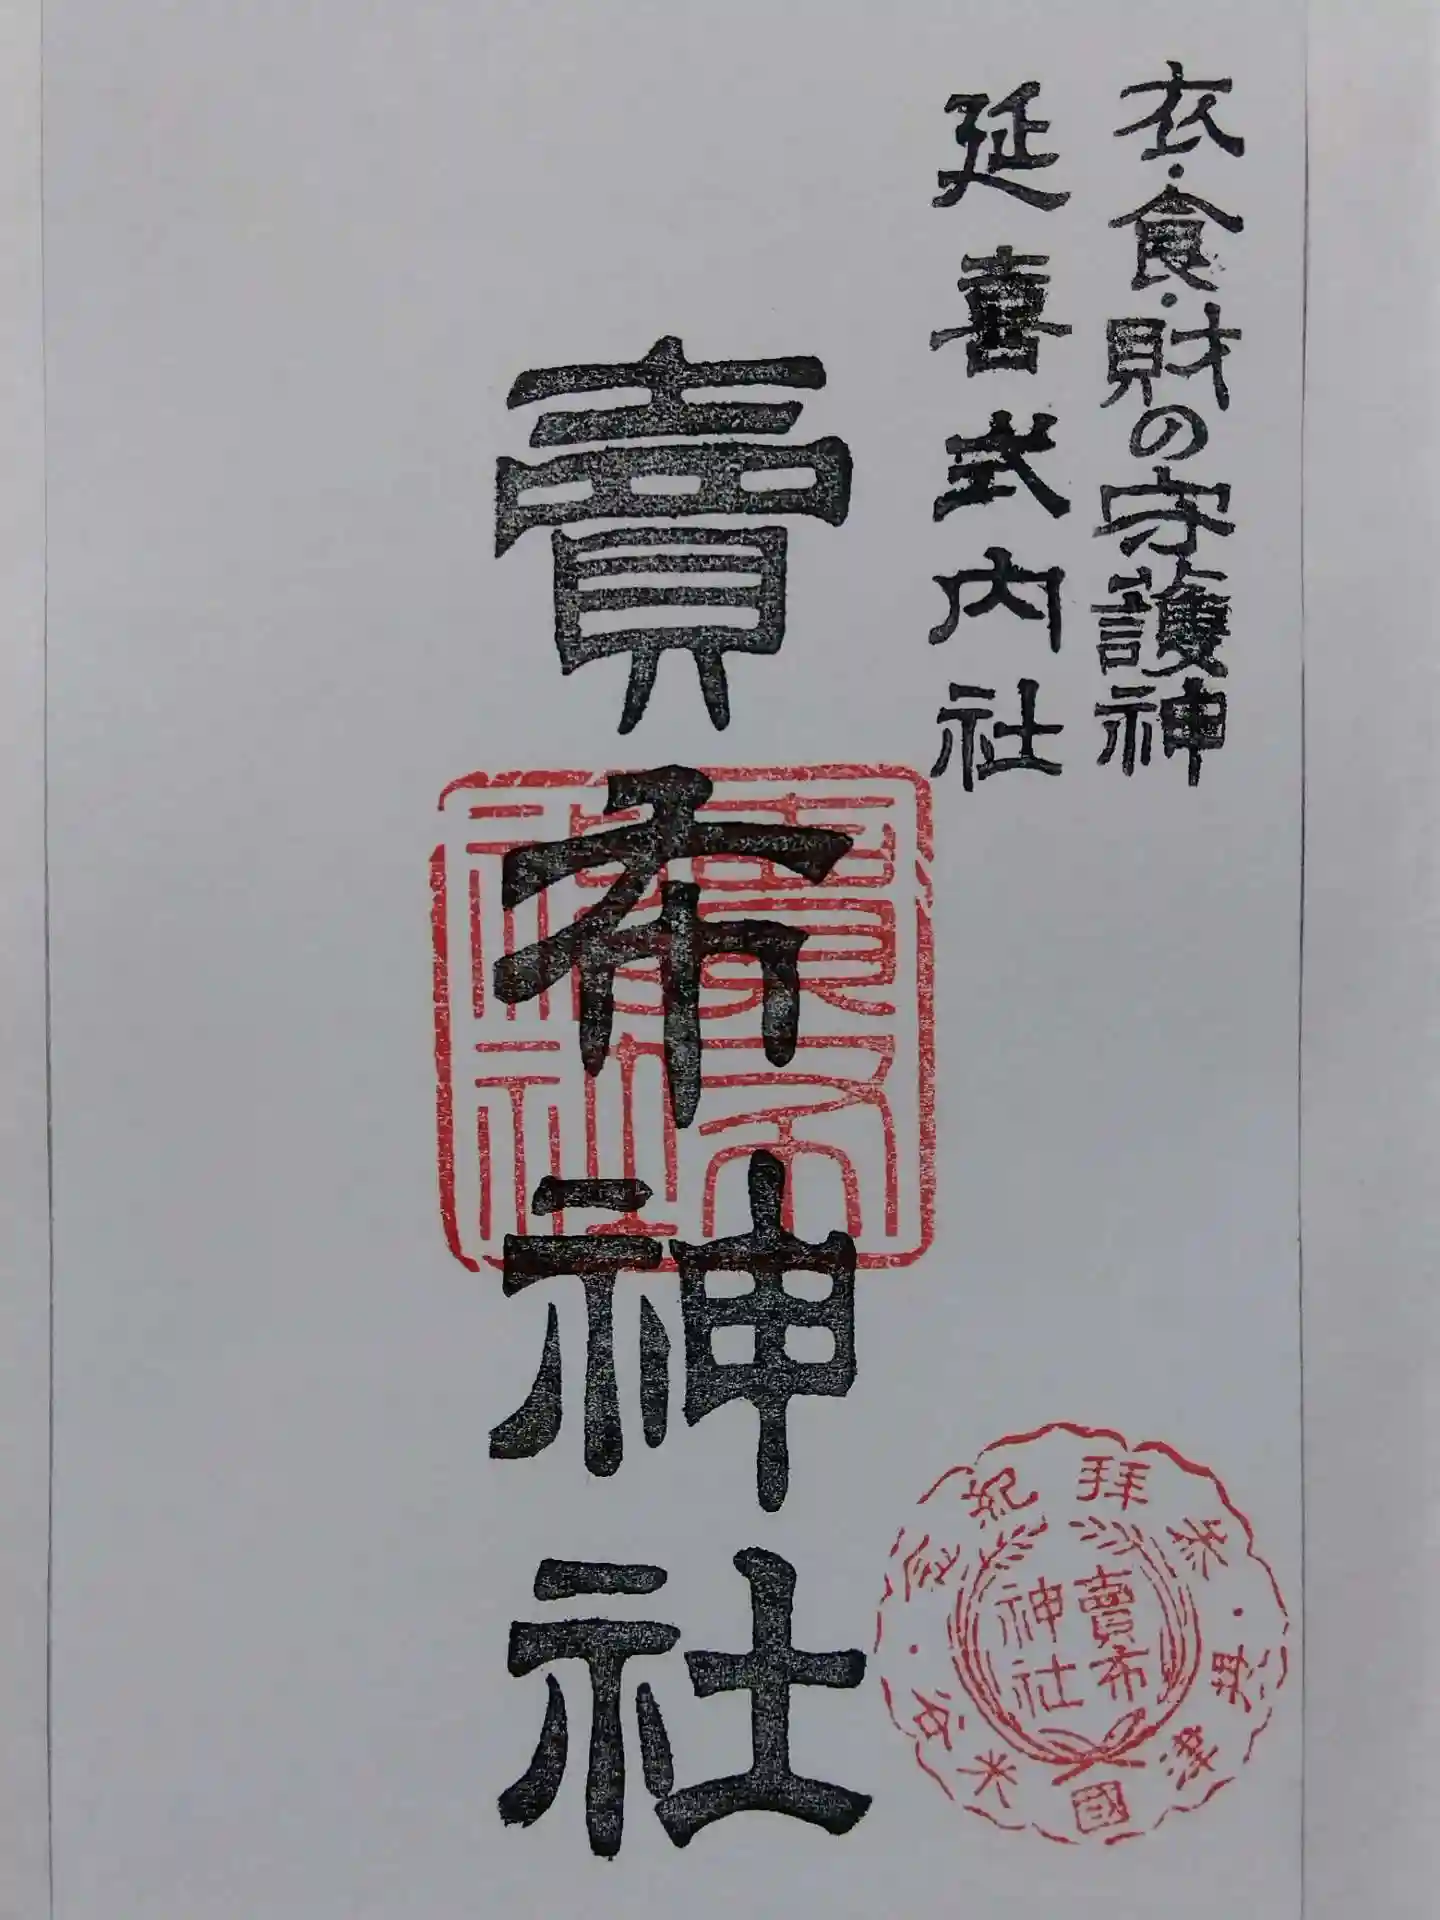 衣・食・財の守護神
延喜式内社
賣布神社
賣布神社
參拜紀念
攝津國米谷
賣布
神社